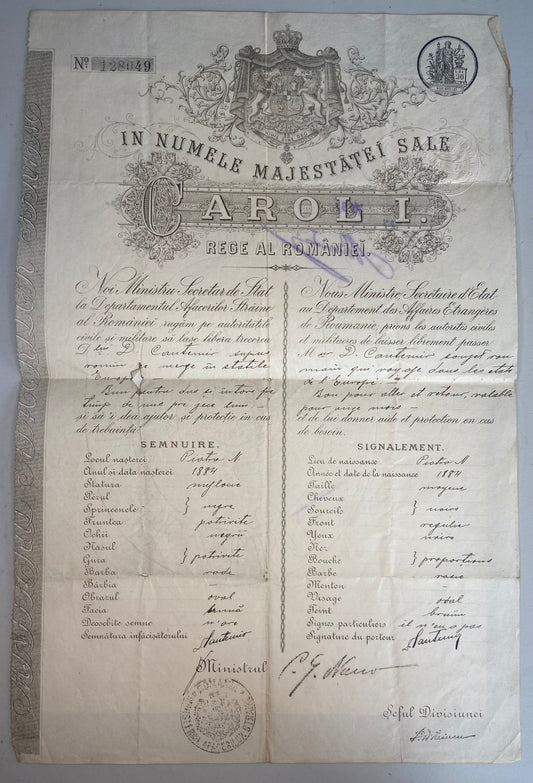 No 128049
IN NUMELE MAJESTĂŢEI SALE
CAROL I.
REGE AL ROMÂNIEI.
Noi Ministru Secretar de Stat
la Departamentul Afacerilor Straine
al Romaniei rugăm pe autorităţile
civile şi militare să lase libera trecerea
D. Cantemir supus
român ce merge in statele
Europei
Bun pentru dus si intors pe
timp de
şi să'i dea ajutor şi protecţie în cas
de trebuinţă
SEMNUIRE.
Locul nasterei Piatra N
Anul si data nasterei 1884
Statura mijlocie
Perul
Sprincenele } negre
Fruntea potrivite
Ochii negrii
Nasul
Gura } potrivite
Barba rade
Bărbia —
Obrazul oval
Facia
Deosebite semne n'are
Semnătura infăcişătorului
Ministrul
Nous Ministre Secrétaire d'État
au Département des Affaires Étrangères
de Roumanie, prions les autorités civiles
et militaires de laisser librement passer
Mr D. Cantemir sujet rou-
main qui voyage dans les états
de l'Europe.
Bon pour aller et retour, valable
pour onze mois —
et de lui donner aide et protection en cas
de besoin.
SIGNALEMENT.
Lieu de naissance Piatra N
Année et date de la naissance 1884
Taille moyenne
Cheveux
Sourcils } noirs
Front régulier
Yeux noirs
Nez
Bouche } proportions
Barbe rasée
Menton —
Visage oval
Teint brun
Signes particuliers il n'en a pas
Signature du porteur
Şeful Divisiunei